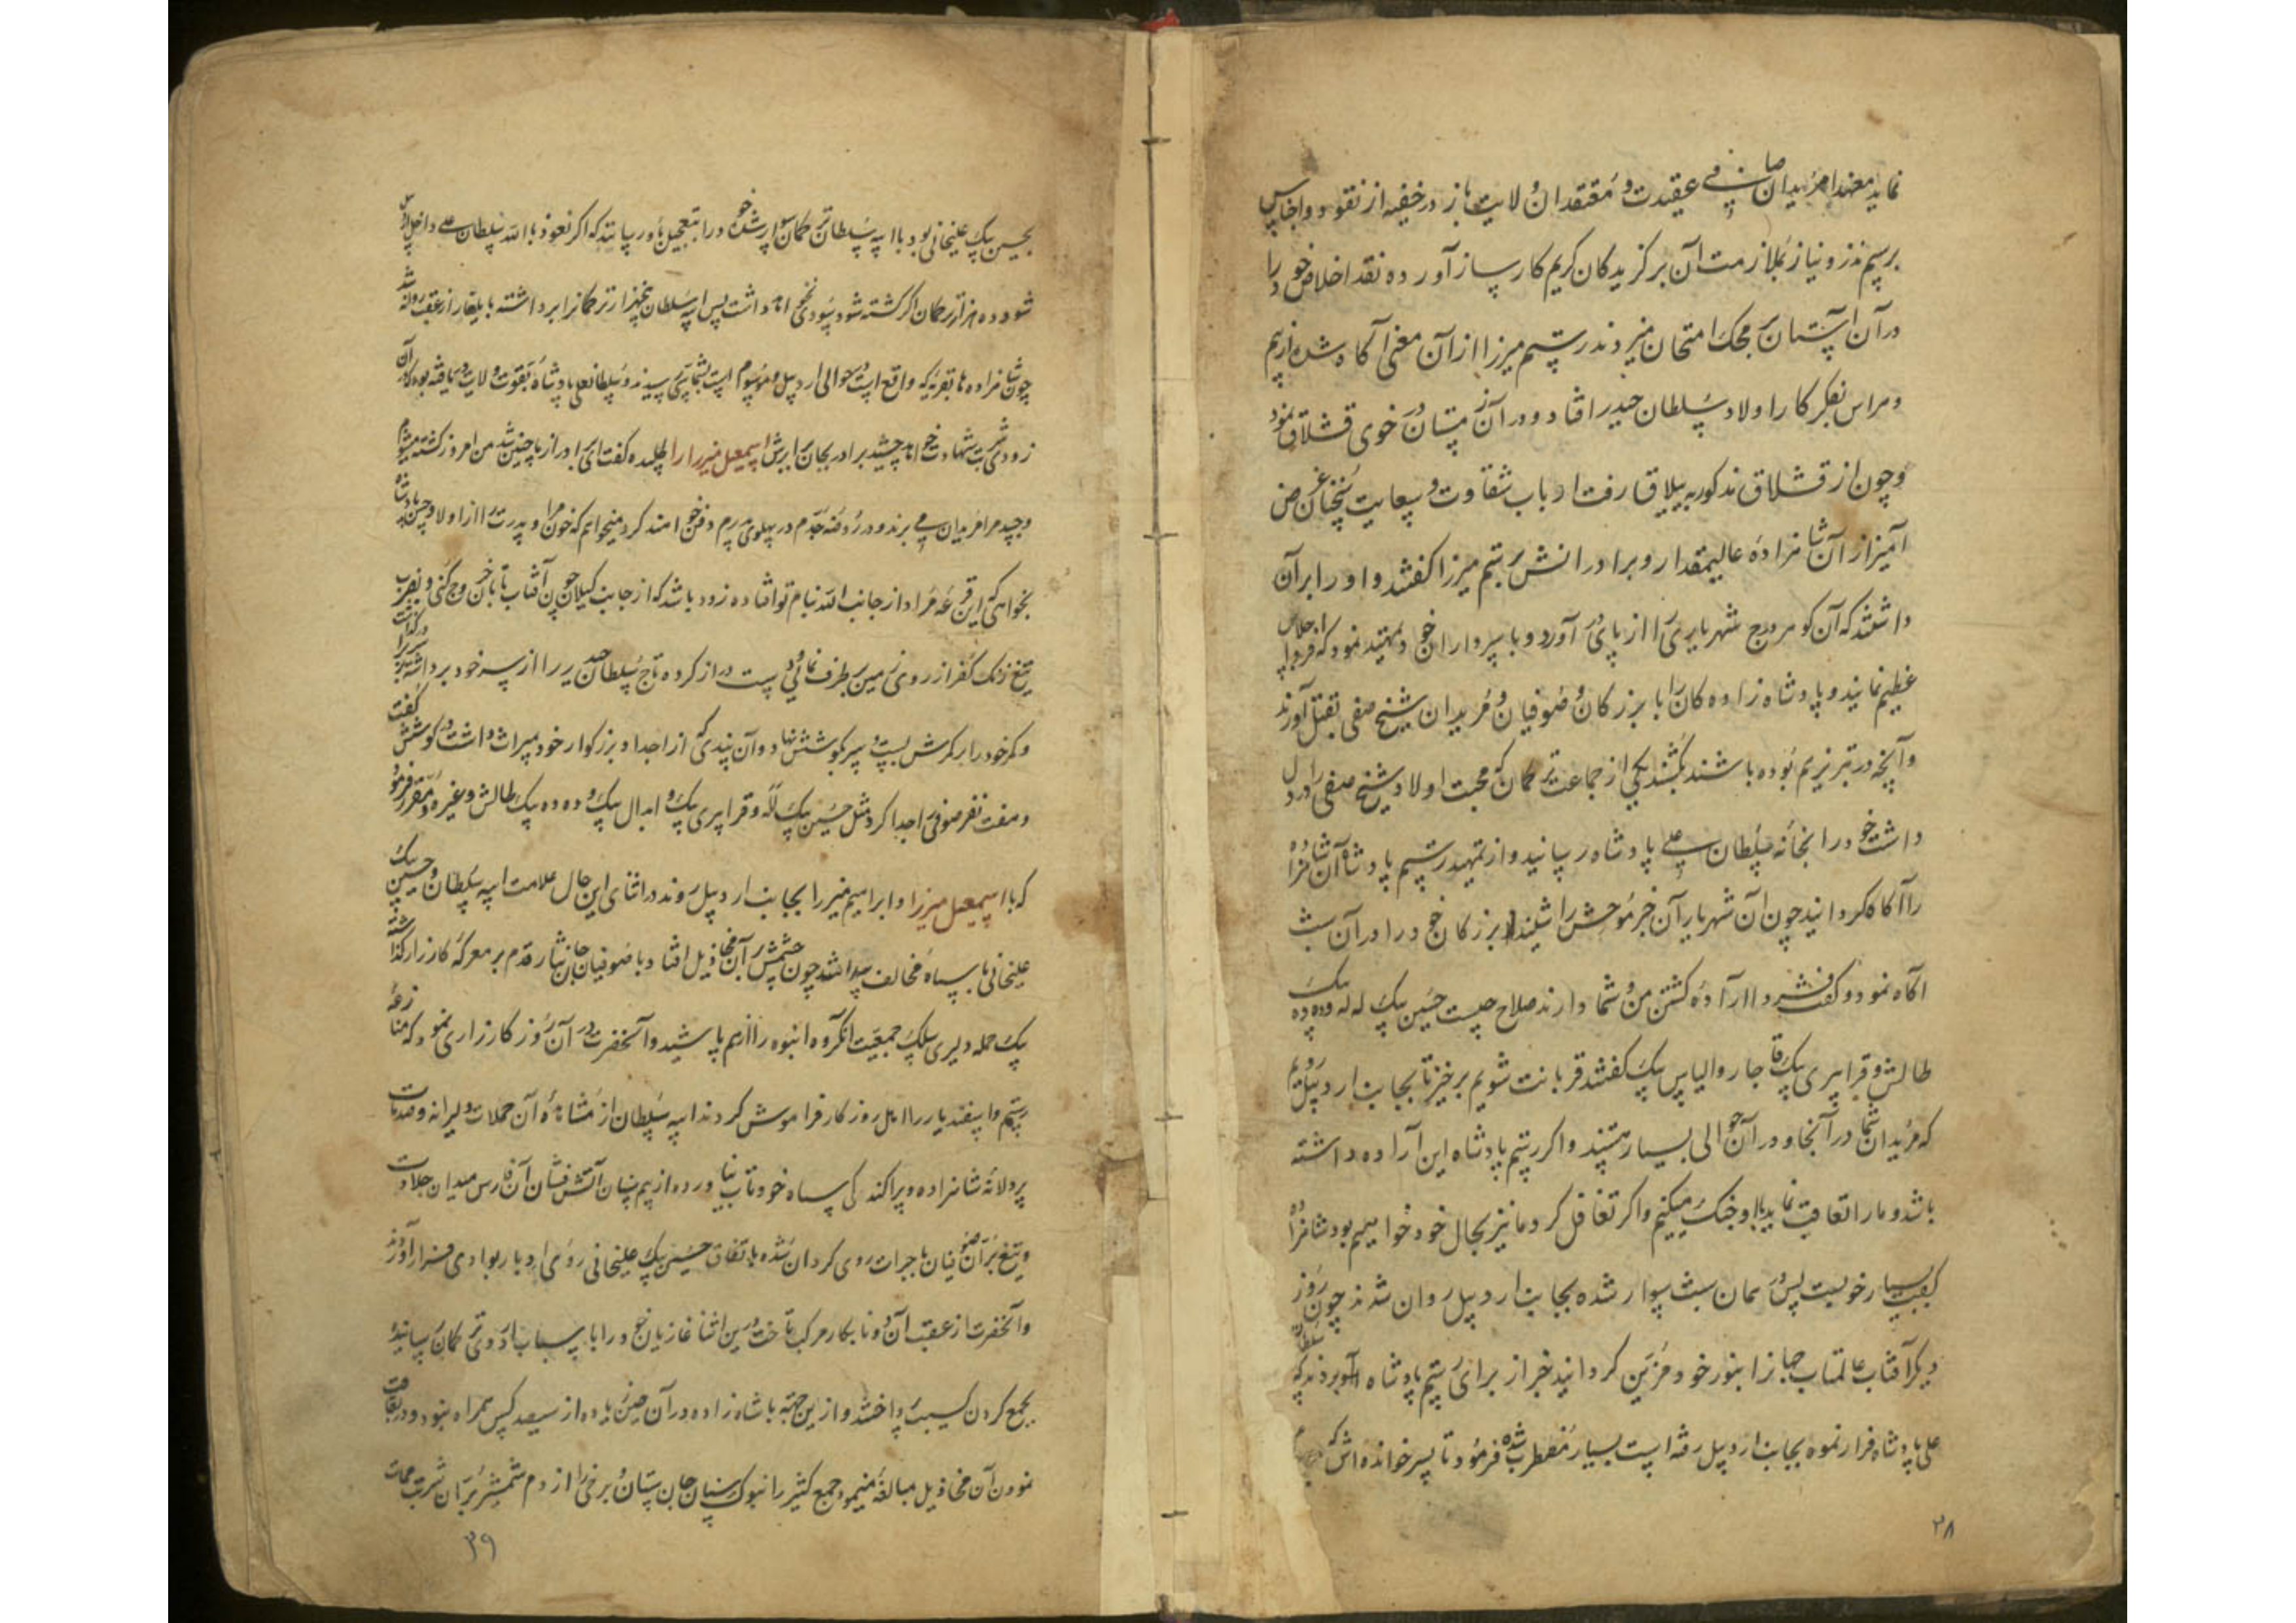 نماید معهذا مریدان صافی عقیدت و معتقدان ولایت باز در خفیه از نقود و اجناس
برسم نذر و نیاز بملازمت آن برکزیدکان کریم کارساز آورده نقد اخلاص خود را
در آن آستان بر محک امتحان میزدند رستم میرزا از آن معنی آکاه شده از بیم
و هراس بفکر کار اولاد سلطان حیدر افتاد و در آن زمستان در خوی قشلاق نمود
و چون از قشلاق مذکور به ییلاق رفت ارباب شقاوت و سعایت سخنان غرض
آمیز از آن شاهزاده عالیمقدار و برادرانش برستم میرزا کفتند و او را بر آن
داشتند که آن کوهر درج شهریاری را از پای در آورد و با سرداران خود تمهید نمود که فردا اجلاس
عظیم نمایند و پادشاه زاده کان را با بزرکان و صوفیان و مریدان شیخ صفی بقتل آورند
و آنچه در تبریز هم بوده باشند بکشند یکی از جماعت ترکمان که محبت اولاد شیخ صفی را در دل
داشت خود را بخانه سلطان علی پادشاه رسانید و از تمهید رستم پادشاه آن شاهزاده
را آکاه کردانید چون آن شهریار آن خبر موحش را شنید بزرکان خود را در آن شب
آکاه نمود و کفت فردا اراده کشتن من و شما دارند صلاح چیست حسین بیک لله و ده ده بیک
طالش و قرا پیری بیک قاجار و الیاس بیک کفتند قربانت شویم برخیز تا بجانب اردبیل رویم
که مریدان شما در آنجا و در آن حوالی بسیار هستند و اکر رستم پادشاه این اراده داشته
باشد و ما را تعاقب نماید با او جنک میکنیم و اکر تغافل کرد ما نیز بحال خود خواهیم بود شاهزاده
کفت بسیار خوبست پس در همان شب سوار شده بجانب اردبیل روان شدند چون روز
دیکر آفتاب عالمتاب جهان را بنور خود مزین کردانید خبر از برای رستم پادشاه آوردند که سلطان
علی پادشاه فرار نموده بجانب اردبیل رفته است بسیار مضطرب شده فرمود تا پسر خوانده اش که
۳۸
بحسین بیک علیخانی بود با ایبه سلطان ترکمان سوار شده خود را بتعجیل باو رسانند که اکر نعوذ بالله سلطان علی داخل اردبیل
شود و ده هزار ترکمان اکر کشته شود سودی نخواهد داشت پس ایبه سلطان پنجهزار ترکمان را برداشته با یلغار از عقب روانه شد
چون شاهزاده ها بقریه که واقع است در حوالی اردبیل و موسوم است بشماسی رسیدند و سلطانعلی پادشاه بقوت ولایت دریافته بود که در آن
زودی شربت شهادت خواهد چشید برادر بجان برابرش اسمعیل میرزا را طلبیده کفت ای برادر از ما چنین شد من امروز کشته میشوم
و جسد مرا مریدان می برند و در روضه جدم در پهلوی پدرم دفن خواهند کرد میخواهم که خون مرا و پدرت را از اولاد حسن پادشاه
بخواهی که این قرعه مراد از جانب الله بنام تو افتاده زود باشد که از جانب کیلان چون آفتاب تابان خروج کنی و بضرب
تیغ زنک کفر از روی زمین بر طرف نمائی و دست دراز کرده تاج سلطان حیدر را از سر خود برداشته بر سر برادر کذاشت
و کمر خود را بر کمرش بست و سر بکوشش نهاد و آن پندی که از اجداد بزرکوار خود میراث داشت در کوشش کفت
و هفت نفر صوفی را جدا کرد مثل حسین بیک لله و قرا پیری بیک و ابدال بیک و ده ده بیک طالش و غیره و مقرر فرمود
که با اسمعیل میرزا و ابراهیم میرزا بجانب اردبیل روند در اثنای این حال علامت ایبه سلطان و حسین بیک
علیخانی با سپاه مخالف پیدا شد چون چشمش بر آن مخاذیل افتاد با صوفیان جان نثار قدم بر معرکه کارزار کذاشته
بیک حمله دلیری سلک جمعیت آنکروه انبوه را از هم پاشید و آنحضرت در آن روز کارزاری نمود که منازعه
رستم و اسفندیار را اهل روزکار فراموش کردند ایبه سلطان از مشاهده آن حملات دلیرانه و صدمات
پر دلانه شاهزاده و پراکند کی سپاه خود تاب نیاورده از بیم سنان آتش فشان آن فارس میدان جلادت
و تیغ بران صوفیان با جرات روی کردان شده باتفاق حسین بیک علیخانی روی ادبار بوادی فرار آوردند
و آنحضرت از عقب آن دو نابکار مرکب تاخت درین اثنا غازیان خود را با سباب اردوی ترکمان رسانیده
بجمع کردن کسیب پرداختند و ازین جهة با شاهزاده در آن حین زیاده از سیصد کس همراه نبود و در تعاقب
نمودن آن مخاذیل مبالغه مینمود جمع کثیر را بنوک سنان جان ستان و برخی را از دم شمشیر بران شربت ممات
۳۹